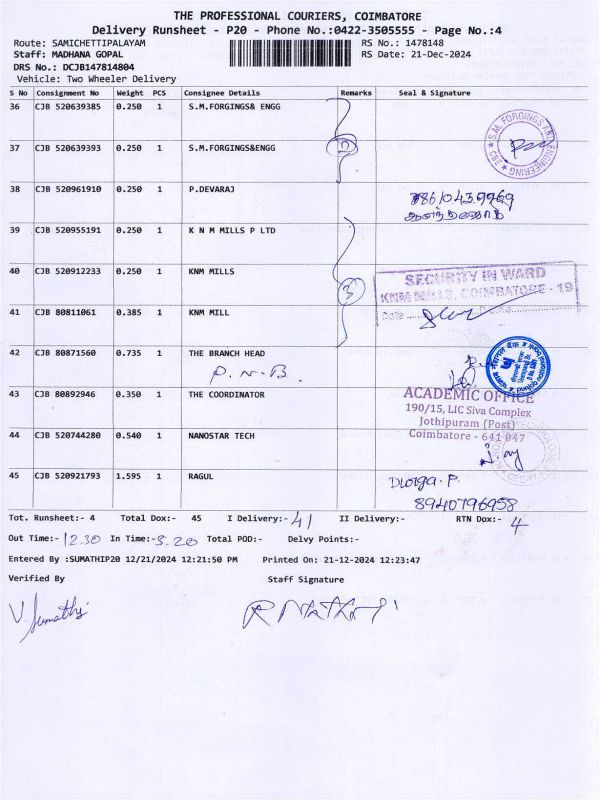 THE PROFESSIONAL COURIERS, COIMBATORE
Delivery Runsheet - P20 - Phone No.:0422-3505555 - Page No.:4
Route: SAMICHETTIPALAYAM RS No.: 1478148
Staff: MADHANA GOPAL RS Date: 21-Dec-2024
DRS No.: DCJB147814804
Vehicle: Two Wheeler Delivery
S No Consignment No Weight PCS Consignee Details Remarks Seal & Signature
36 CJB 520639385 0.250 1 S.M.FORGINGS& ENGG
37 CJB 520639393 0.250 1 S.M.FORGINGS&ENGG
S.M. FORGINGS AND ENGINEERING
38 CJB 520961910 0.250 1 P.DEVARAJ
39 CJB 520955191 0.250 1 K N M MILLS P LTD
40 CJB 520912233 0.250 1 KNM MILLS 3
SECURITY IN WARD
KNM MILLS, COIMBATORE - 19
Date
41 CJB 80811061 0.385 1 KNM MILL
42 CJB 80871560 0.735 1 THE BRANCH HEAD
P.N.B.
43 CJB 80892946 0.350 1 THE COORDINATOR
ACADEMIC OFFICE
190/15, LIC Siva Complex
Jothipuram (Post)
Coimbatore - 641 047
44 CJB 520744280 0.540 1 NANOSTAR TECH
45 CJB 520921793 1.595 1 RAGUL
Durga. P.
8940796958
Tot. Runsheet:- 4 Total Dox:- 45 I Delivery:- 41 II Delivery:- RTN Dox:- 4
Out Time:- 12.30 In Time:- 5.20 Total POD:- Delvy Points:-
Entered By :SUMATHIP20 12/21/2024 12:21:50 PM Printed On: 21-12-2024 12:23:47
Verified By Staff Signature
V. Sumathi